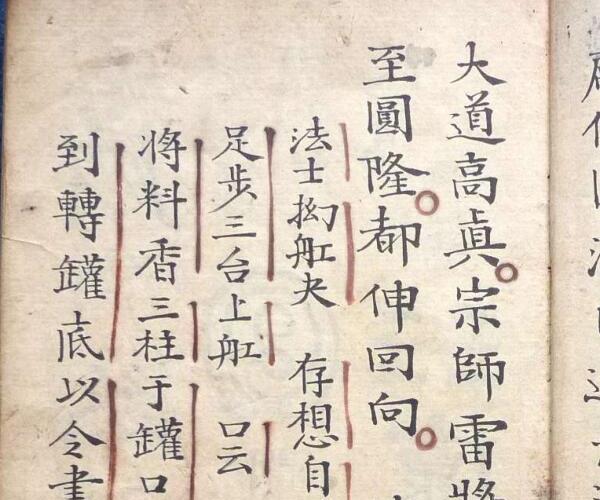 大道高眞宗師雷將
至圓隆都伸回向
法士拗舡夬 存想自
足步三台上舡 口云
將料香三柱于罐口
到轉罐底以令書